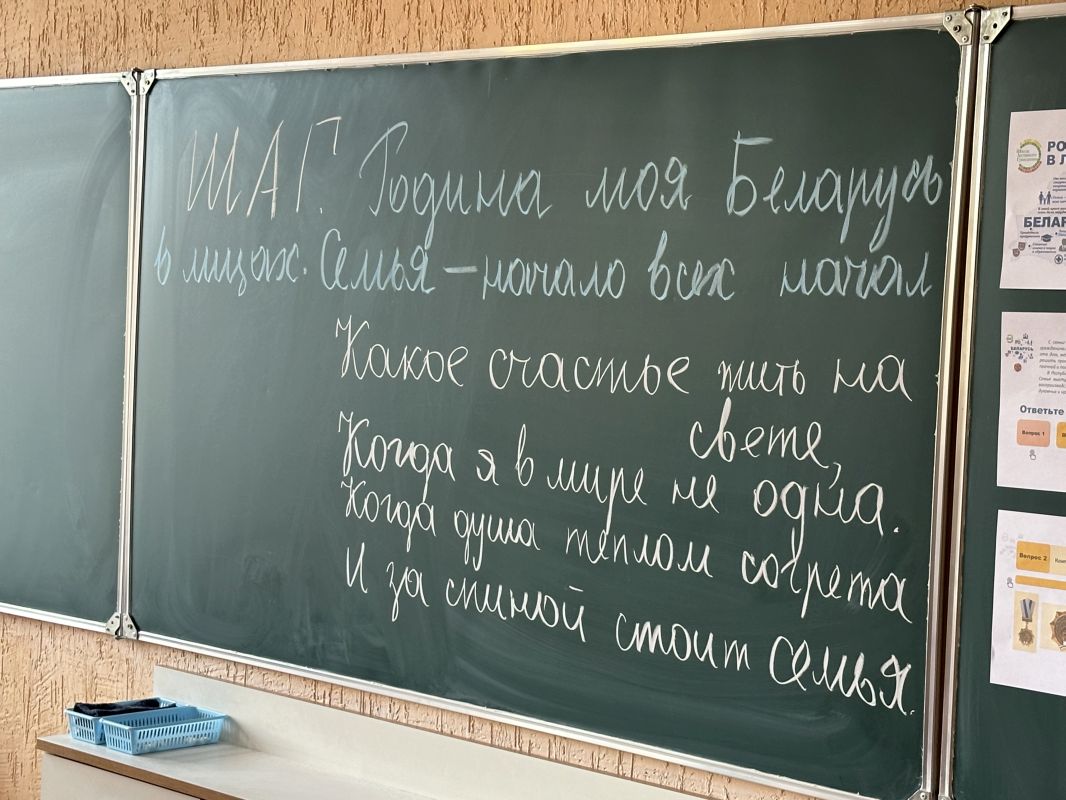 ШАГ. Родина моя Беларусь
в лицах. Семья – начало всех начал
Какое счастье жить на
свете,
Когда я в мире не одна.
Когда душа теплом согрета
И за спиной стоит семья.
РО
В Л
БЕЛАР
БЕЛАРУСЬ
Ответьте
Вопрос 1
Вопрос 2